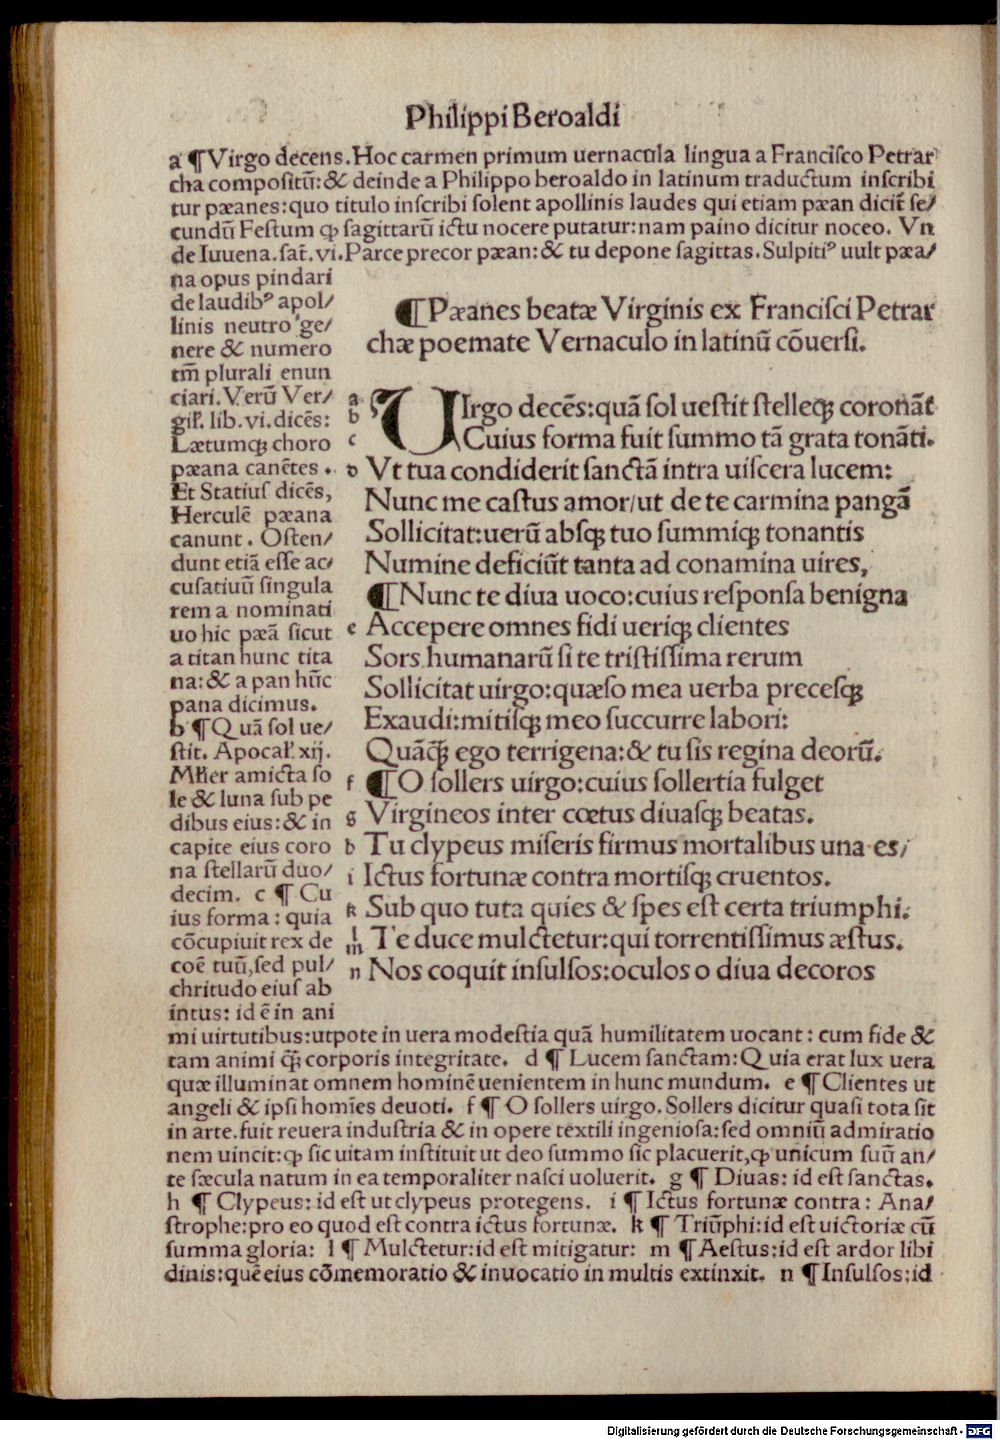 Philippi Beroaldi
a ¶ Virgo decens. Hoc carmen primum uernacula lingua a Franciſco Petrar
cha compoſitū: & deinde a Philippo beroaldo in latinum traductum inſcribi
tur pæanes: quo titulo inſcribi ſolent apollinis laudes qui etiam pæan dicit̃ ſe/
cundū Feſtum ꝙ ſagittarū ictu nocere putatur: nam paino dicitur noceo. Vn
de Iuuena. ſat̃. vi. Parce precor pæan: & tu depone ſagittas. Sulpitiꝰ uult pæa/
na opus pindari
de laudibꝰ apol/
linis neutro ge/
nere & numero
tm̄ plurali enun
ciari. Verū Ver/
gil̉. lib. vi. dicēs:
Lætumqꝫ choro
pæana canētes .
Et Statiuſ dicēs,
Herculē pæana
canunt . Oſten/
dunt etiā eſſe ac/
cuſatiuū ſingula
rem a nominati
uo hic pæā ſicut
a titan hunc tita
na: & a pan hūc
pana dicimus.
b ¶ Quā ſol ue/
ſtit. Apocal̉. xij.
Ml̉ier amicta ſo
le & luna ſub pe
dibus eius: & in
capite eius coro
na ſtellarū duo/
decim. c ¶ Cu
ius forma : quia
cōcupiuit rex de
coē tuū, ſed pul/
chritudo eiuſ ab
intus: id ē in ani
¶ Pæanes beatæ Virginis ex Franciſci Petrar
chæ poemate Vernaculo in latinū cōuerſi.
a VIrgo decēs: quā ſol ueſtit ſtelleqꝫ coronāt
b
c Cuius forma fuit ſummo tā grata tonāti.
d Vt tua condiderit ſanctā intra uiſcera lucem:
Nunc me caſtus amor/ut de te carmina pangā
Sollicitat: uerū abſqꝫ tuo ſummiqꝫ tonantis
Numine deficiūt tanta ad conamina uires,
¶ Nunc te diua uoco: cuius reſponſa benigna
e Accepere omnes fidi ueriqꝫ clientes
Sors humanarū ſi te triſtiſſima rerum
Sollicitat uirgo: quæſo mea uerba preceſqꝫ
Exaudi: mitiſqꝫ meo ſuccurre labori:
Quāqꝫ̄ ego terrigena: & tu ſis regina deorū.
f ¶ O ſollers uirgo: cuius ſollertia fulget
g Virgineos inter cœtus diuaſqꝫ beatas.
h Tu clypeus miſeris firmus mortalibus una es/
i Ictus fortunæ contra mortiſqꝫ cruentos.
k Sub quo tuta quies & ſpes eſt certa triumphi.
l
m Te duce mulctetur: qui torrentiſſimus æſtus.
n Nos coquit inſulſos: oculos o diua decoros
mi uirtutibus: utpote in uera modeſtia quā humilitatem uocant : cum fide &
tam animi qꝫ̄ corporis integritate. d ¶ Lucem ſanctam: Quia erat lux uera
quæ illuminat omnem hominē uenientem in hunc mundum. e ¶ Clientes ut
angeli & ipſi homīes deuoti. f ¶ O ſollers uirgo. Sollers dicitur quaſi tota ſit
in arte. fuit reuera induſtria & in opere textili ingenioſa: ſed omniū admiratio
nem uincit: ꝙ ſic uitam inſtituit ut deo ſummo ſic placuerit, ꝙ unicum ſuū an/
te ſæcula natum in ea temporaliter naſci uoluerit. g ¶ Diuas: id eſt ſanctas.
h ¶ Clypeus: id eſt ut clypeus protegens. i ¶ Ictus fortunæ contra: Ana/
ſtrophe: pro eo quod eſt contra ictus fortunæ. k ¶ Triūphi: id eſt uictoriæ cū
ſumma gloria: l ¶ Mulctetur: id eſt mitigatur: m ¶ Aeſtus: id eſt ardor libi
dinis: quē eius cōmemoratio & inuocatio in multis extinxit. n ¶ Inſulſos: id
Digitalisierung gefördert durch die Deutsche Forschungsgemeinschaft - DFG